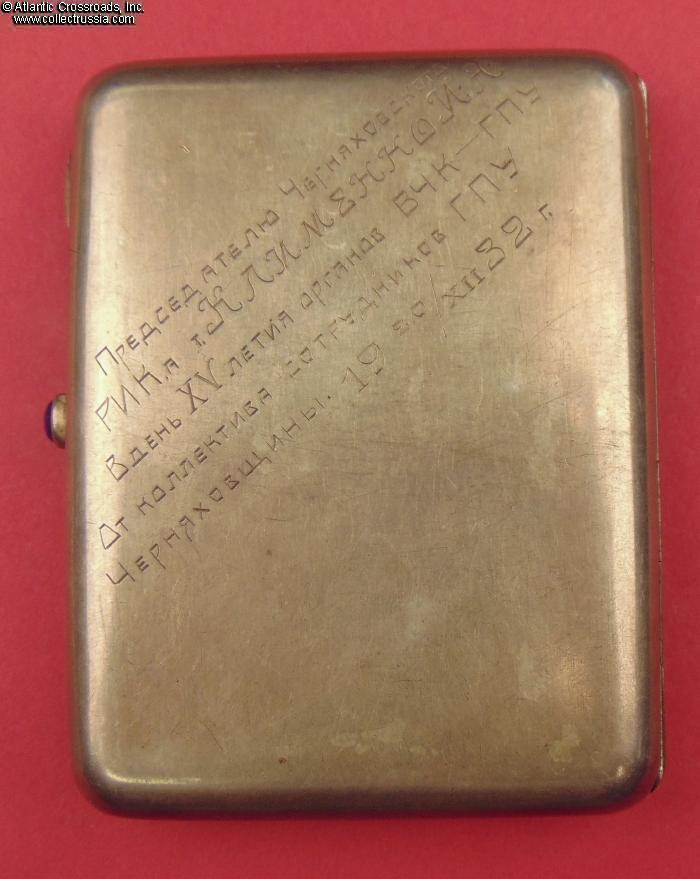 © Atlantic Crossroads, Inc.
www.collectrussia.com
Председателю Черняховского
РИКа т. КЛИМЕНКО И.Я
В день XV летия органов ВЧК—ГПУ
От коллектива сотрудников ГПУ
Черняховщины. 19 20/XII 32 г.